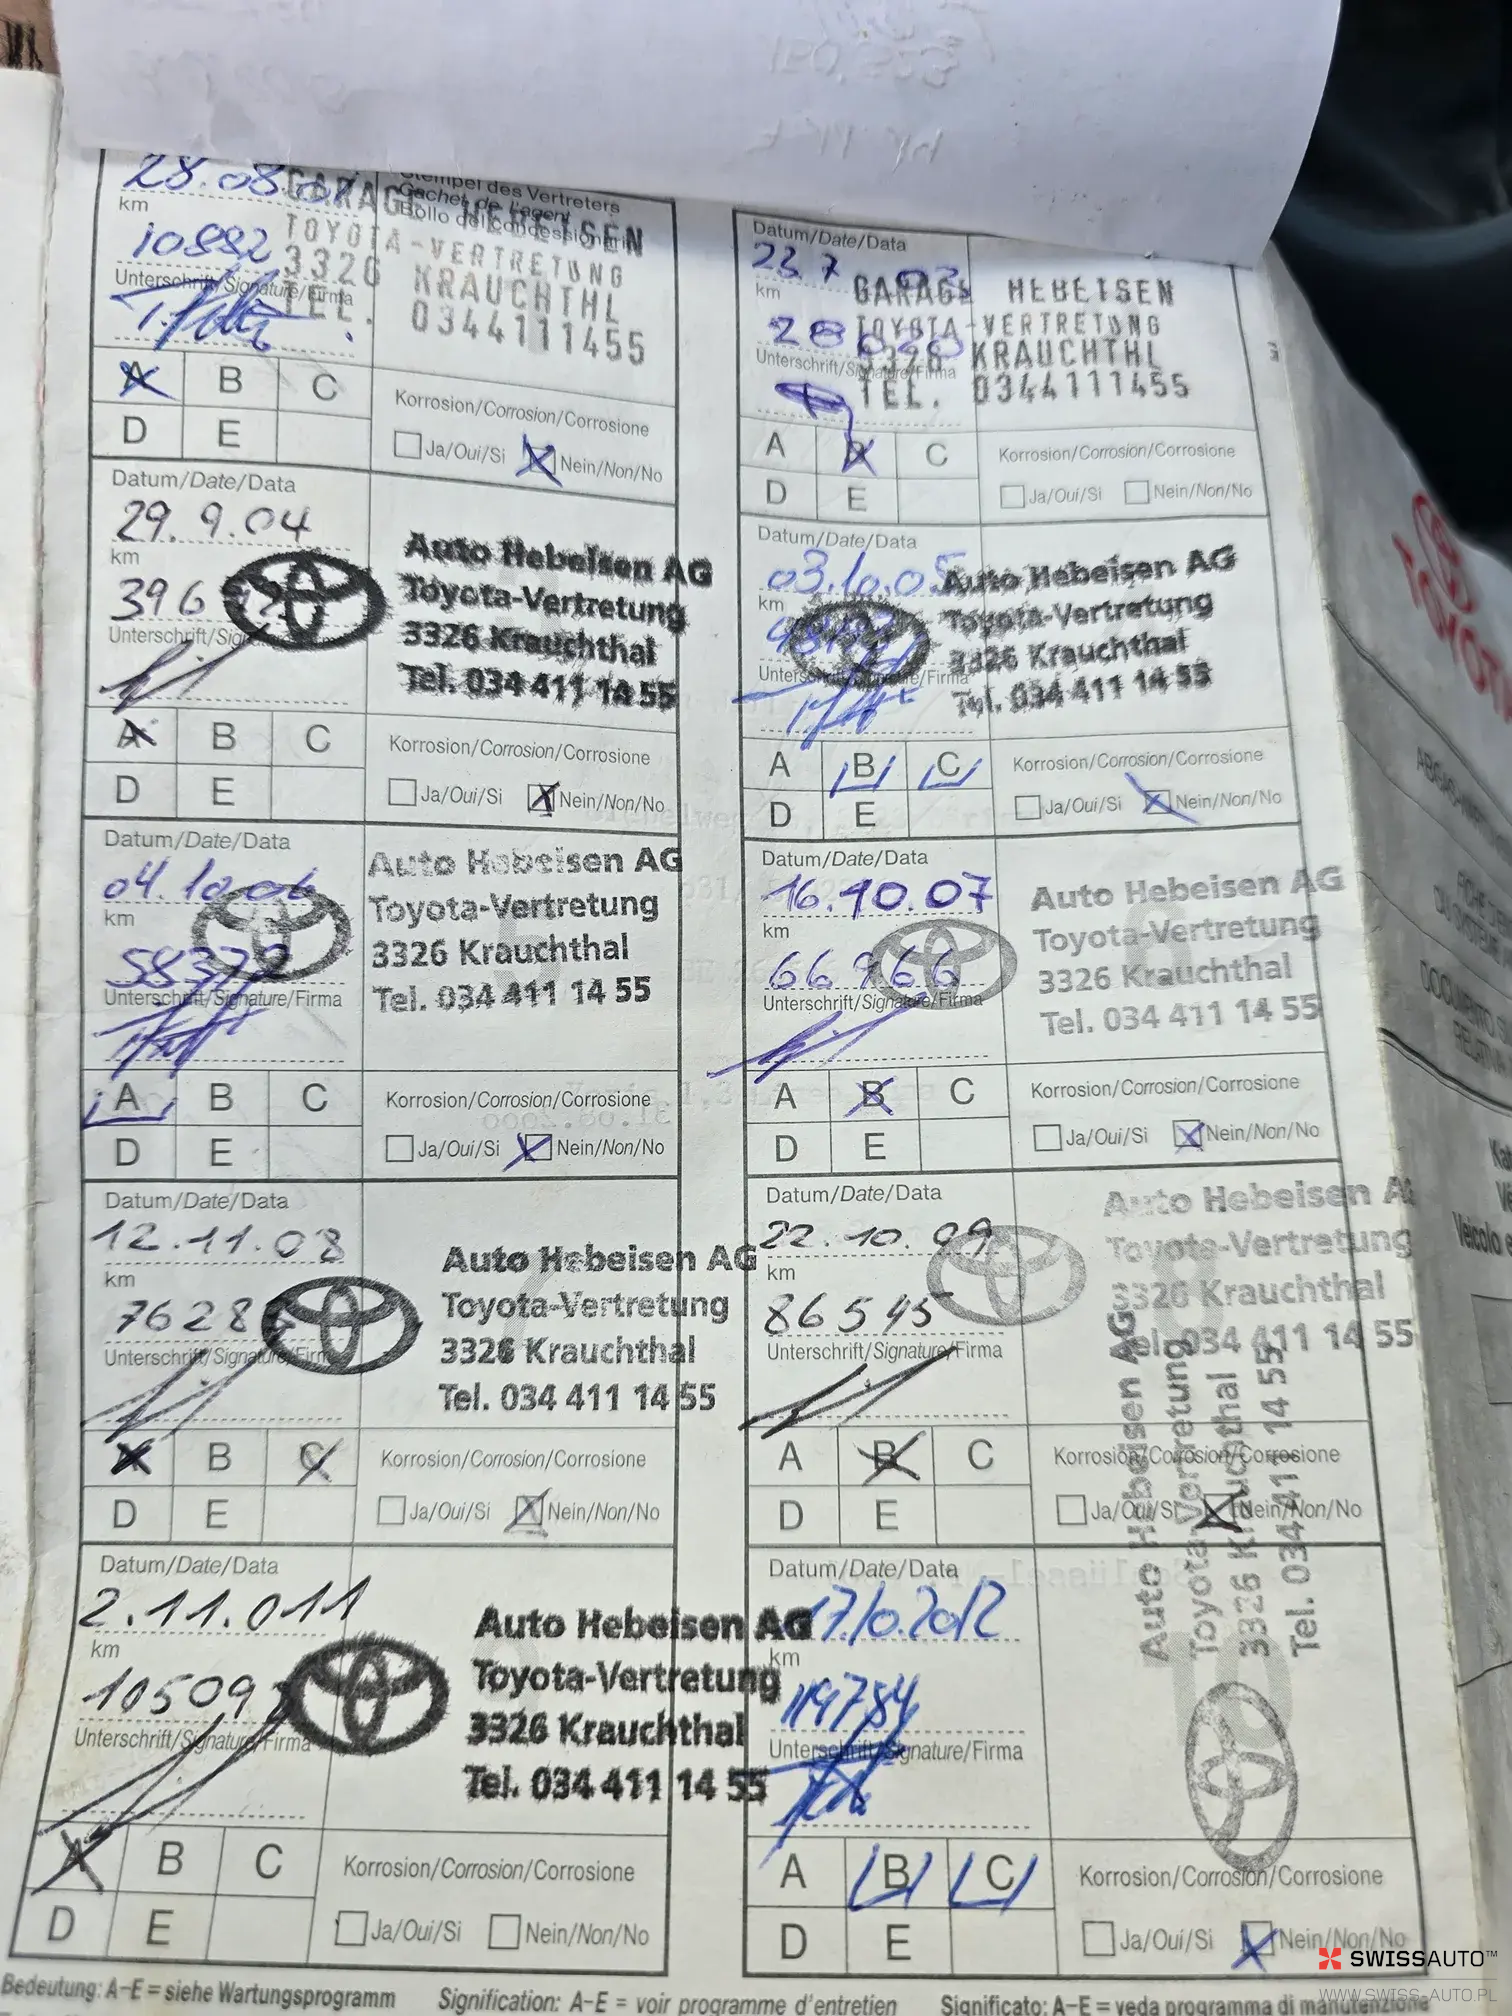 28.08.
Stempel des Vertreters
Cachet de l'agent
Bollo del concessionario
GARAGE HEBEISEN
TOYOTA-VERTRETUNG
3326 KRAUCHTHL
TEL. 0344111455
km
10882
Unterschrift/Signature/Firma
A B C
D E
Korrosion/Corrosion/Corrosione
Ja/Oui/Si Nein/Non/No
Datum/Date/Data
23.7
GARAGE HEBEISEN
TOYOTA-VERTRETUNG
3326 KRAUCHTHL
TEL. 0344111455
km
Unterschrift/Signature/Firma
A B C
D E
Korrosion/Corrosion/Corrosione
Ja/Oui/Si Nein/Non/No
Datum/Date/Data
29.9.04
km
Unterschrift/
Auto Hebeisen AG
Toyota-Vertretung
3326 Krauchthal
Tel. 034 411 14 55
A B C
D E
Korrosion/Corrosion/Corrosione
Ja/Oui/Si Nein/Non/No
Datum/Date/Data
03.10.05
km
Unterschrift/Signature/Firma
Auto Hebeisen AG
Toyota-Vertretung
3326 Krauchthal
Tel. 034 411 14 55
A B C
D E
Korrosion/Corrosion/Corrosione
Ja/Oui/Si Nein/Non/No
Datum/Date/Data
04.10.06
km
Unterschrift/Signature/Firma
Auto Hebeisen AG
Toyota-Vertretung
3326 Krauchthal
Tel. 034 411 14 55
A B C
D E
Korrosion/Corrosion/Corrosione
Ja/Oui/Si Nein/Non/No
Datum/Date/Data
16.10.07
km
66966
Unterschrift/Signature/Firma
Auto Hebeisen AG
Toyota-Vertretung
3326 Krauchthal
Tel. 034 411 14 55
A B C
D E
Korrosion/Corrosion/Corrosione
Ja/Oui/Si Nein/Non/No
Datum/Date/Data
12.11.08
km
Unterschrift/Signature/Firma
Auto Hebeisen AG
Toyota-Vertretung
3326 Krauchthal
Tel. 034 411 14 55
A B C
D E
Korrosion/Corrosion/Corrosione
Ja/Oui/Si Nein/Non/No
Datum/Date/Data
22.10.09
km
86545
Unterschrift/Signature/Firma
Auto Hebeisen AG
Toyota-Vertretung
3326 Krauchthal
Tel. 034 411 14 55
A B C
D E
Korrosion/Corrosion/Corrosione
Ja/Oui/Si Nein/Non/No
Datum/Date/Data
2.11.011
km
Unterschrift/Signature/Firma
Auto Hebeisen AG
Toyota-Vertretung
3326 Krauchthal
Tel. 034 411 14 55
A B C
D E
Korrosion/Corrosion/Corrosione
Ja/Oui/Si Nein/Non/No
Datum/Date/Data
17.10.2012
km
119784
Unterschrift/Signature/Firma
Auto Hebeisen AG
Toyota-Vertretung
3326 Krauchthal
Tel. 034 411 14 55
10
A B C
D E
Korrosion/Corrosion/Corrosione
Ja/Oui/Si Nein/Non/No
Bedeutung: A-E = siehe Wartungsprogramm
Signification: A-E = voir programme d'entretien
Significato: A-E = veda programma di manutenzione
TOYOTA
SWISSAUTO™
WWW.SWISS-AUTO.PL